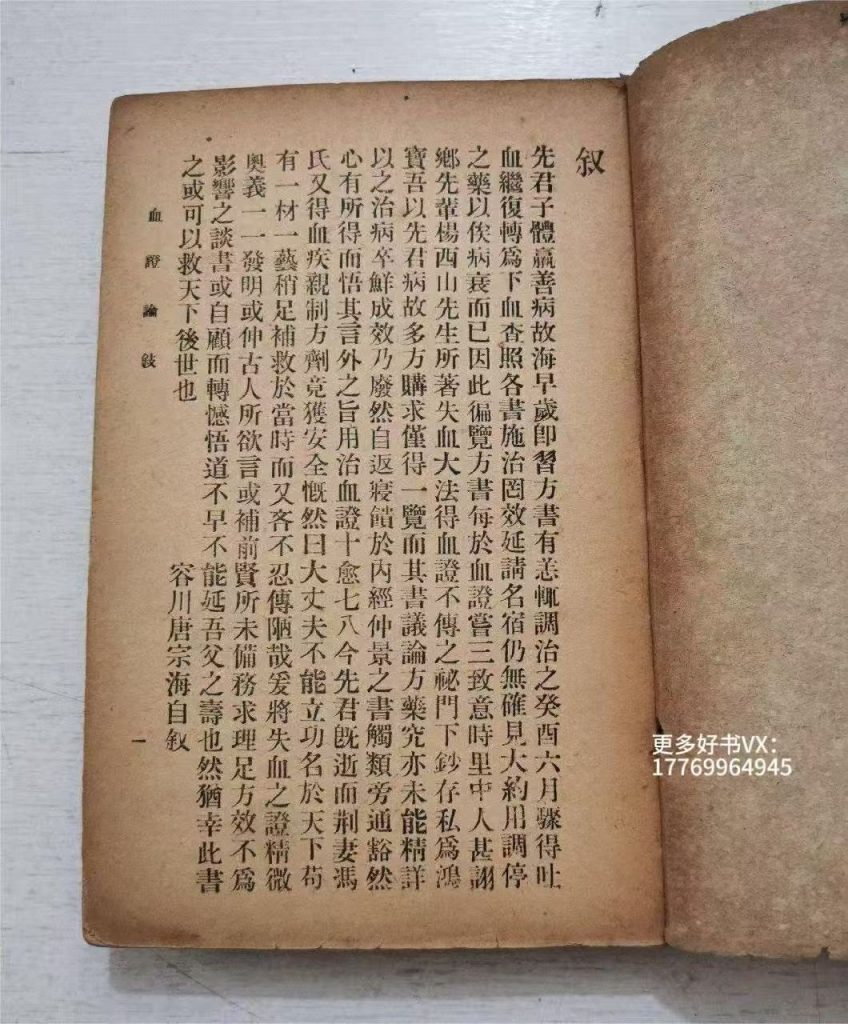 叙
先君子體羸善病故海早歲卽習方書有恙輒調治之癸酉六月驟得吐
血繼復轉爲下血查照各書施治罔效延請名宿仍無確見大約用調停
之藥以俟病衰而已因此徧覽方書每於血證嘗三致意時里中人甚詡
鄉先輩楊西山先生所著失血大法得血證不傳之祕門下鈔存私爲鴻
寶吾以先君病故多方購求僅得一覽而其書議論方藥究亦未能精詳
以之治病卒鮮成效乃廢然自返寢饋於內經仲景之書觸類旁通豁然
心有所得而悟其言外之旨用治血證十愈七八今先君旣逝而荆妻馮
氏又得血疾親制方劑竟獲安全慨然曰大丈夫不能立功名於天下苟
有一材一藝稍足補救於當時而又吝不忍傳陋哉爰將失血之證精微
奧義一一發明或伸古人所欲言或補前賢所未備務求理足方效不爲
影響之談書成自顧而轉憾悟道不早不能延吾父之壽也然猶幸此書
之或可以救天下後世也
容川唐宗海自叙
血證論敍
一
更多好书VX：
17769964945